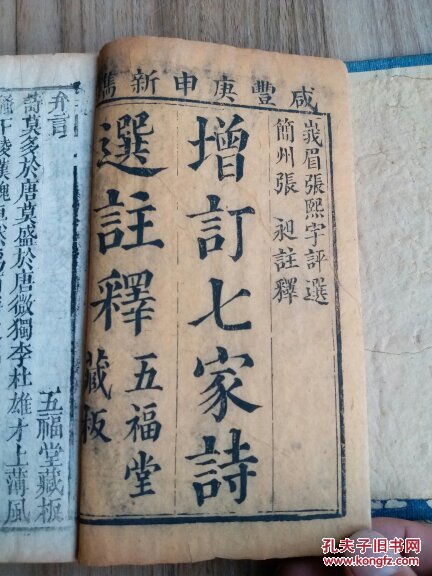 咸豐庚申新鐫
峩眉張熙宇評選
簡州張昶註釋
增訂七家詩
選註釋
五福堂
藏板
弁言
詩莫多於唐莫盛於唐微獨李杜雄才上薄風
五福堂藏板
孔夫子旧书网